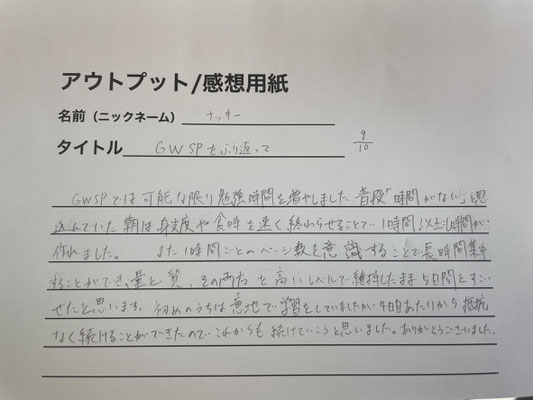 アウトプット/感想用紙
名前（ニックネーム） ナッキー
タイトル GWSPをふり返って 9/10
GWSPでは可能な限り勉強時間を増やしました。普段「時間がない」と思い
込んでいた朝は身支度や食時を速く終わらせることで1時間以上時間が
作れました。 また1時間ごとのページ数を意識することで長時間集中
することができ、量と質、その両方を高いレベルで維持したまま5日間をすご
せたと思います。初めのうちは意地で学習をしていましたが4日目あたりから抵抗
なく続けることができたのでこれからも続けていこうと思いました。ありがとうございました。